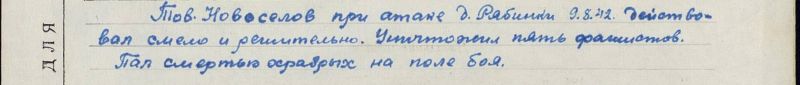 Тов. Новоселов при атаке д. Рябинки 9.8.42. действо-
вал смело и решительно. Уничтожил пять фашистов.
Пал смертью храбрых на поле боя.
ДЛЯ